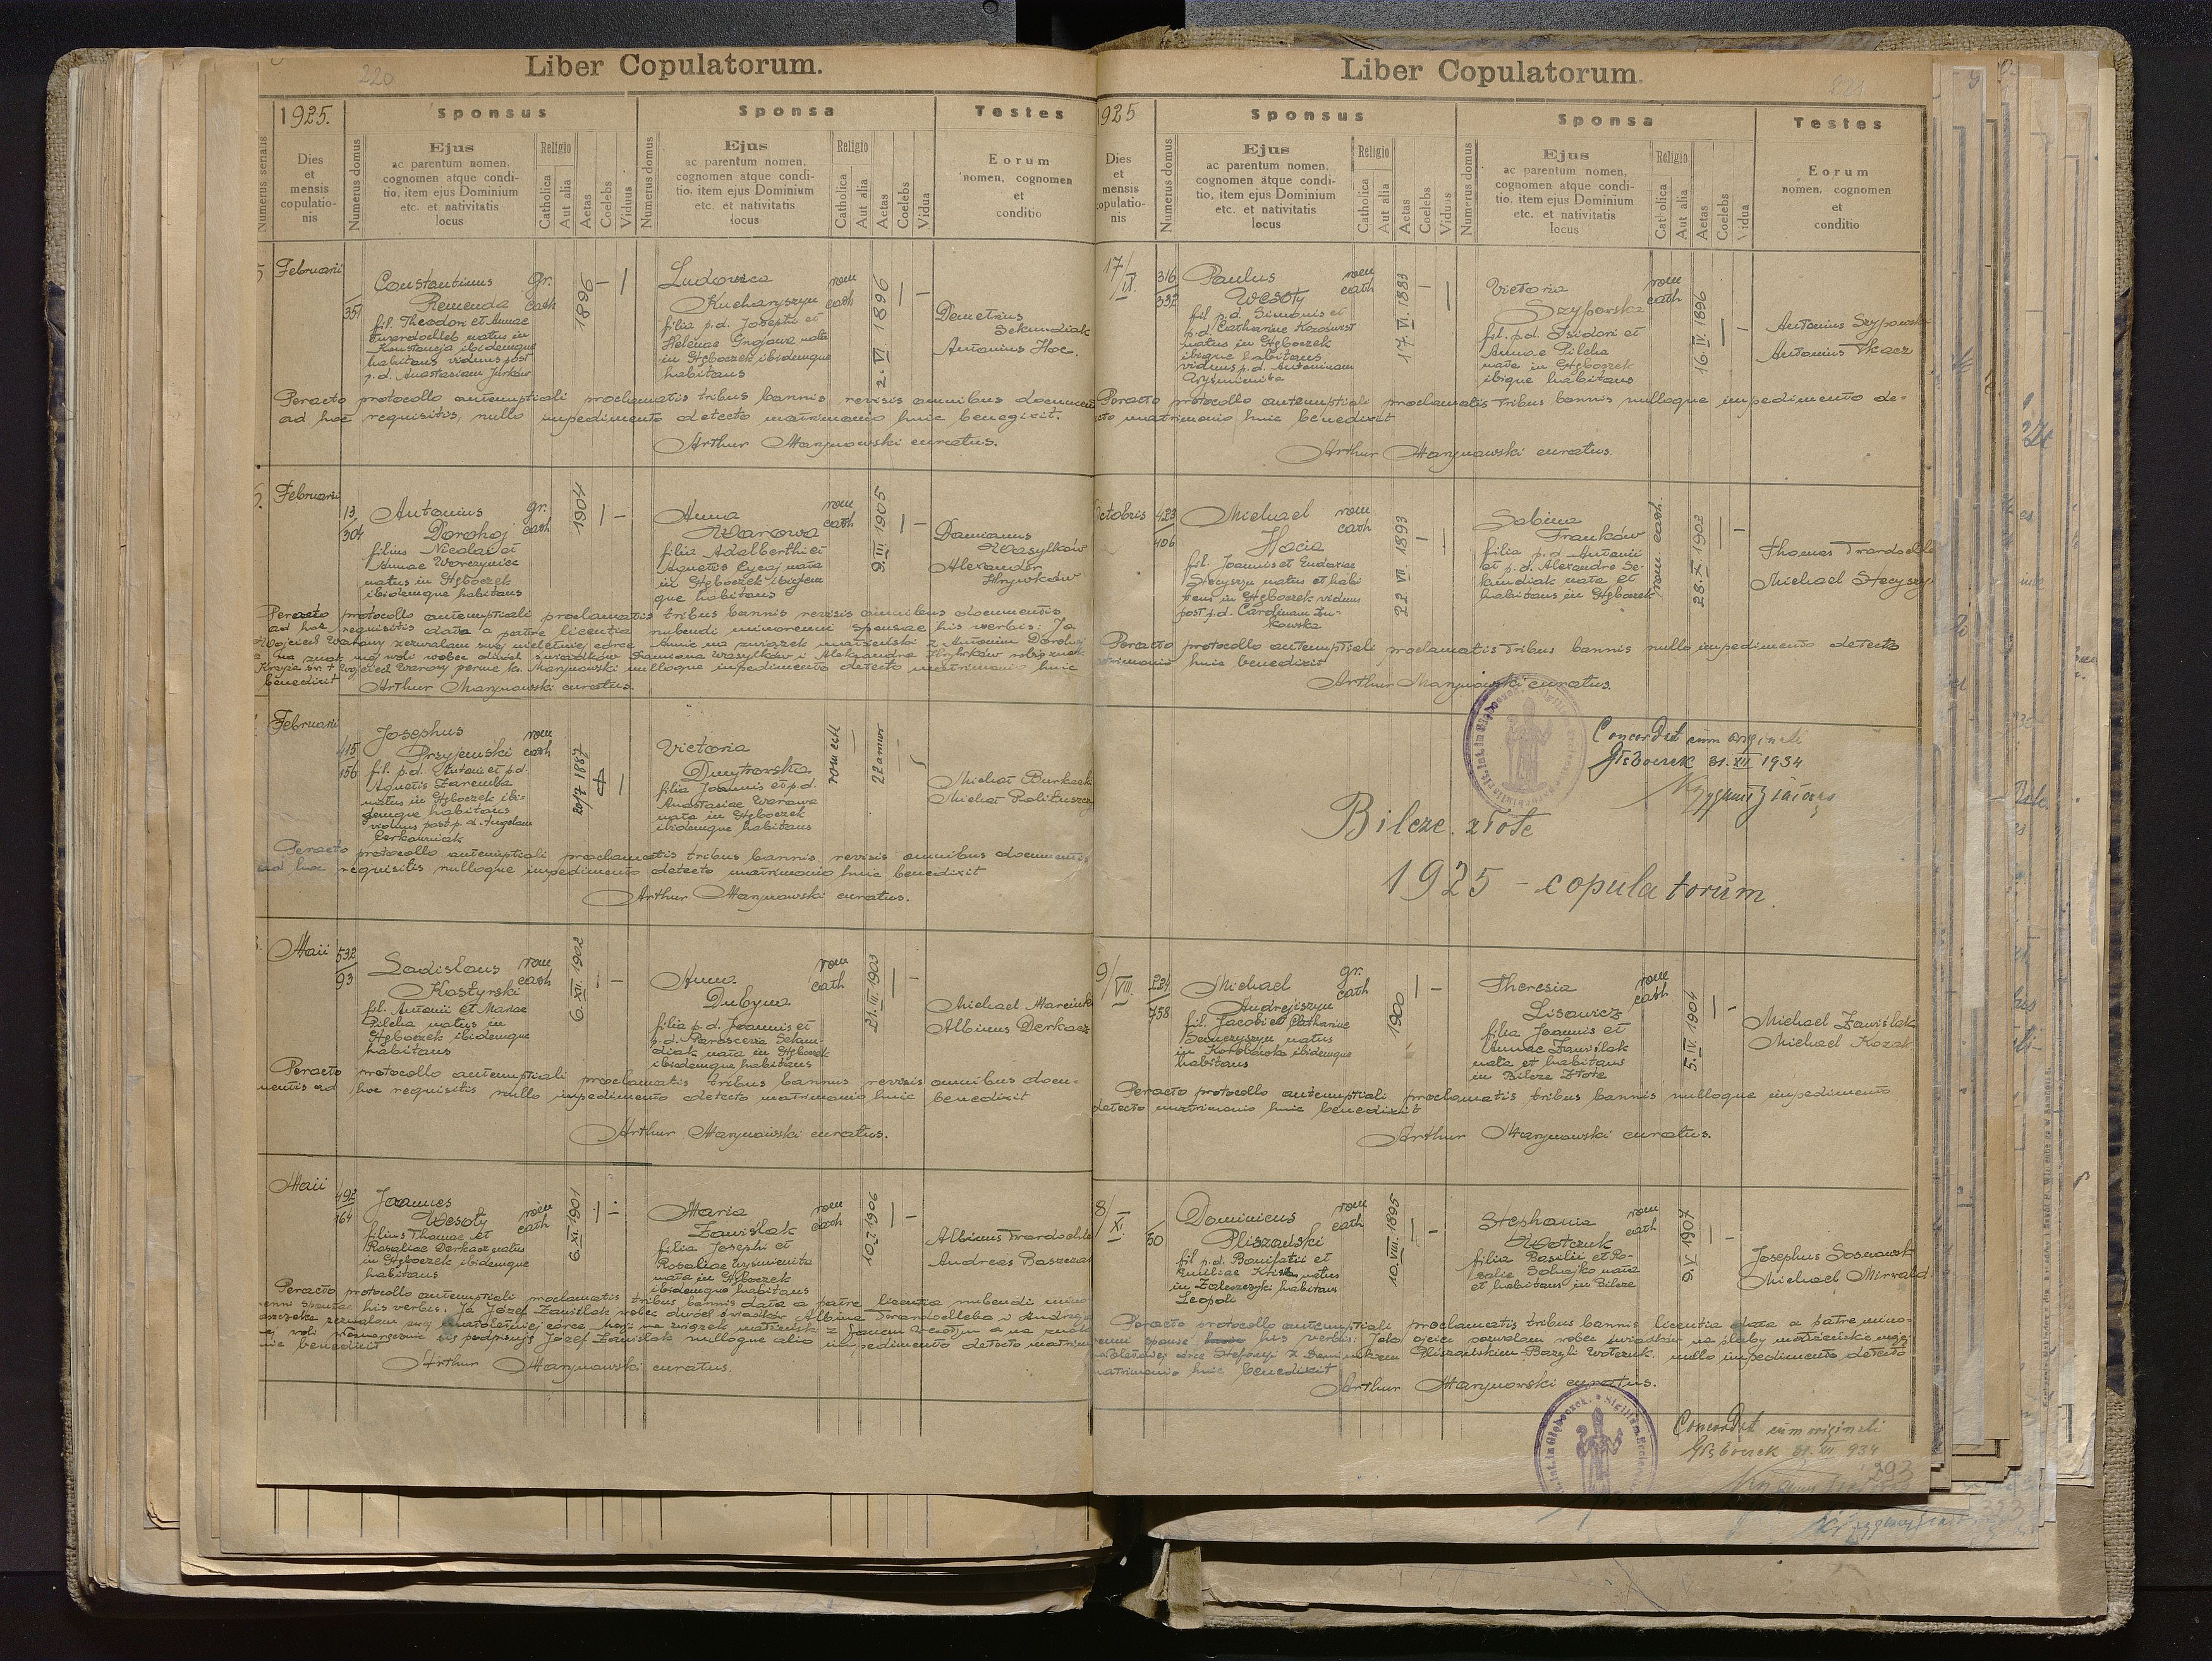 220
Liber Copulatorum.
1925.
Sponsus
Sponsa
Testes
Numerus serialis
Dies
et
mensis
copulatio-
nis
Numerus domus
Ejus
ac parentum nomen,
cognomen atque condi-
tio, item ejus Dominium
etc. et nativitatis
locus
Religio
Catholica
Aut alia
Aetas
Coelebs
Viduus
Numerus domus
Ejus
ac parentum nomen,
cognomen atque condi-
tio, item ejus Dominium
etc. et nativitatis
locus
Religio
Catholica
Aut alia
Aetas
Coelebs
Vidua
Eorum
nomen, cognomen
et
conditio
Februarii
351
Constantinus
Remenda
fil. Theodori et Annae
Twardochleb natus in
Konstancja ibidemque
habitans viduus post
p.d. Anastasiam Jurków
gr.
cath
1896
Ludovica
Kucharyszyn
filia p.d. Josephi et
Helenae Gnojowa nata
in Głęboczek ibidemque
habitans
rom
cath
2. VI. 1896
Demetrius
Sekundiak
Antonius Hoc.
Peracto protocollo antenuptiali proclamatis tribus bannis revisis omnibus documen
ad hoc requisitis, nullo impedimento detecto matrimonio huic benegixit.
Arthur Marynowski curatus.
Februarii
13
304
Antonius
Dorohoj
filius Nicolai et
Annae Worczynice
natus in Głęboczek
ibidemque habitans
gr.
cath
1904
Anna
Warowa
filia Adalberthi et
Agnetis Cycoj nata
in Głęboczek ibidem
que habitans
rom
cath
9. III 1905
Damianus
Wasylków
Alexander
Hrywków
Peracto protocollo antenuptiali proclamatis tribus bannis revisis omnibus documentis
ad hoc requisitis data a patre licentia nubendi minorenni sponsae his verbis: Ja
Wojciech Warowy zezwalam swej nieletniej córce Annie na związek małżeński z Antonim Dorohoj
na znak mej woli wobec dwóch świadków Damiana Wasylków i Aleksandra Hrywków robię znak
Krzyża św. + Wojciech Warowy permc ks. Marynowski nulloque impedimento detecto matrimonio huic
benedixit
Arthur Marynowski curatus.
Februarii
415
156
Josephus
Przyjemski
fil. p.d. Antoni et p.d.
Agnetis Zaremba
natus in Głęboczek ibi-
demque habitans
viduus post p.d. Angelam
Cerkowniak
rom
cath
20/7 1887
Victoria
Dmytrowska
filia Joannis et p.d.
Anastasiae Warowa
nata in Głęboczek
ibidemque habitans
rom cath
22 annor
Michał Burkacki
Michał Rolitusze
Peracto protocollo antenuptiali proclamatis tribus bannis, revisis omnibus documentis
ad hoc requisitis nulloque impedimento detecto matrimonio huic benedixit
Arthur Marynowski curatus.
Maii
532
93
Ladislaus
Kostyrski
fil. Antonii et Mariae
Pilcha natus in
Głęboczek ibidemque
habitans
rom
cath
6. XII. 1902
Anna
Dubyna
filia p.d. Joannis et
p.d. Parascevia Sekun-
diak nata in Głęboczek
ibidemque habitans
rom
cath
21. III. 1903
Michael Marciuk
Albinus Derkacz
Peracto protocollo antenuptiali proclamatis tribus bannis revisis omnibus docu-
mentis ad hoc requisitis nullo impedimento detecto matrimonio huic benedixit
Arthur Marynowski curatus.
Maii
492
164
Joannes
Wesoły
filius Thomae et
Rosaliae Derkacz natus
in Głęboczek ibidemque
habitans
rom
cath
6. XI. 1901
Maria
Zawiślak
filia Josephi et
Rosaliae Wyśmienita
nata in Głęboczek
ibidemque habitans
rom
cath
10. I 1906
Albinus Twardochle
Andreas Baszczat
Peracto protocollo antenuptiali proclamatis tribus bannis data a patre licentia nubendi mino
enni sponsae his verbis. Ja Józef Zawiślak wobec dwóch świadków Albina Twardochleba i Andrzeja
zezwalam swej małoletniej córce Marji na związek małżeńsk z Janem Wesołym a na znak
mej woli własnoręcznie się podpisuję Józef Zawiślak nulloque alio impedimento detecto matrim
huic benedixit
Arthur Marynowski curatus.
221
Liber Copulatorum.
1925
Sponsus
Sponsa
Testes
Dies
et
mensis
copulatio-
nis
Numerus domus
Ejus
ac parentum nomen,
cognomen atque condi-
tio, item ejus Dominium
etc. et nativitatis
locus
Religio
Catholica
Aut alia
Aetas
Coelebs
Viduus
Numerus domus
Ejus
ac parentum nomen,
cognomen atque condi-
tio, item ejus Dominium
etc. et nativitatis
locus
Religio
Catholica
Aut alia
Aetas
Coelebs
Vidua
Eorum
nomen, cognomen
et
conditio
17/IX.
316
332
Paulus
Wesoły
fil p.d. Simonis et
p.d. Catharinae
natus in Głęboczek
ibique habitans
viduus p.d. Antoninam
Wyśmienita
rom
cath
17. VI. 1883
Victoria
Szyborska
fil. p.d. Isidori et
Annae Pilcha
nata in Głęboczek
ibique habitans
rom
cath
16. IV. 1896
Antonius Szyporski
Antonius Tkacz
Peracto protocollo antenuptiali proclamatis tribus bannis nulloque impedimento de-
cto matrimonio huic benedixit
Arthur Marynowski curatus.
Octobris
423
406
Michael
Hacia
fil. Joannis et Eudoxiae
Stecyszyn natus et habi
tans in Głęboczek viduus
post p.d. Carolinam Żu-
kowska
rom
cath
22 VII 1893
Sabina
Franków
filia p.d. Antonii
et p.d. Alexandre Se-
kundiak nata et
habitans in Głęboczek
rom. cath.
28. X. 1903
Thomas Twardochle
Michael Stecyszy
Peracto protocollo antenuptiali proclamatis tribus bannis nullo impedimento detecto
trimonio huic benedixit
Arthur Marynowski curatus.
Concordat cum originali
Głęboczek 31. XII 1934
Bilcze. złote
1925 - copulatorum.
9/VIII.
224
758
Michael
Andrejiszyn
fil. Jacobi et Catharinae
Semczyszyn natus
in Korolówka ibidemque
habitans
gr.
cath
1900
Theresia
Lisowicz
filia Joannis et
Annae Zawiślak
nata et habitans
in Bilcze Złote
rom
cath
5. IV. 1904
Michael Zawiślak
Michael Kozak
Peracto protocollo antenuptiali proclamatis tribus bannis nulloque impedimento
detecto matrimonio huic benedixit
Arthur Marynowski curatus.
8/XI.
50
Dominicus
Pliszański
fil p.d. Bonifatii et
Emiliae natus
in Zaleszczyki habitans
Leopoli
rom
cath
10. VIII. 1895
Stephania
Wołczuk
filia Basilii et Ro-
salie Sohajko nata
et habitans in Bilcze
rom
cath
9. V 1907
Josephus Sosnowsk
Michael Mirwald
Peracto protocollo antenuptiali proclamatis tribus bannis licentia data a patre mino-
renni sponse his verbis: Jako ojciec pozwalam wobec świadków na śluby małżeńskie mojej
małoletniej córce Stefanji z Dominikiem Pliszańskim - Bazyli Wołczuk. nullo impedimento detecto
matrimonio huic benedixit
Arthur Marynowski curatus.
Concordat cum originali
Głęboczek 31. XII 934
293